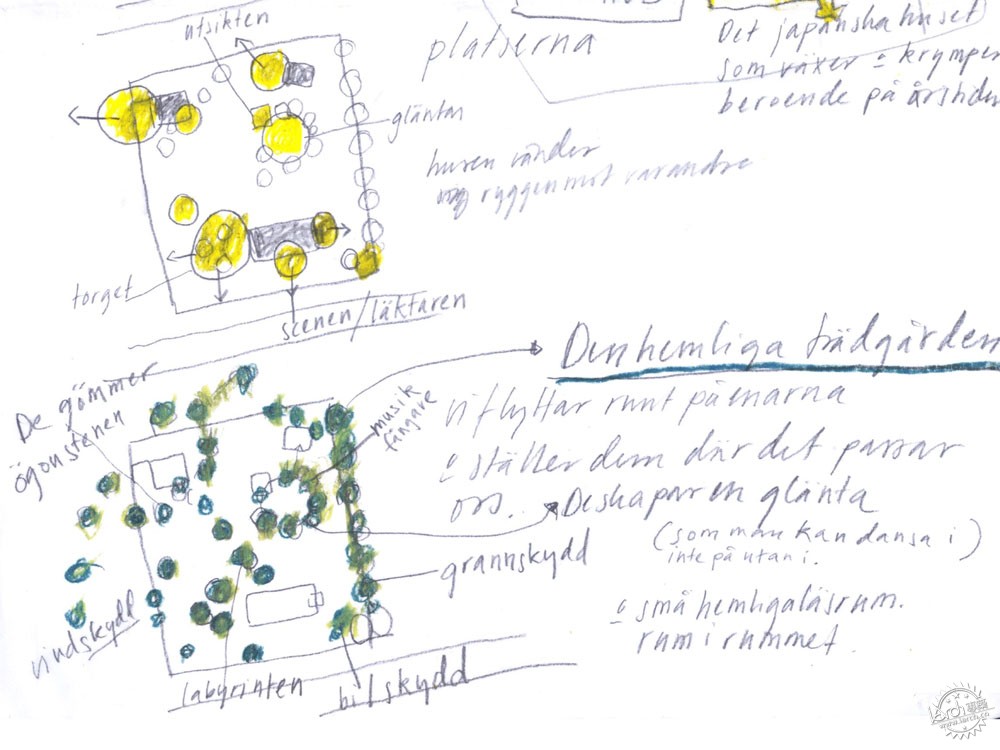 utsikten
platserna
Det japanska huset
som växer o krymper
beroende på årstiden
gläntan
husen vänder
ryggen mot varandra
torget
scenen/läktaren
De gömmer
ögonstenen
musik
fångare
Den hemliga trädgården
vi flyttar runt på enarna
o ställer dem där det passar
oss. De skapar en glänta
(som man kan dansa i)
inte på utan i.
grannskydd
o små hemliga läsrum.
rum i rummet
vindskydd
labyrinten
bilskydd